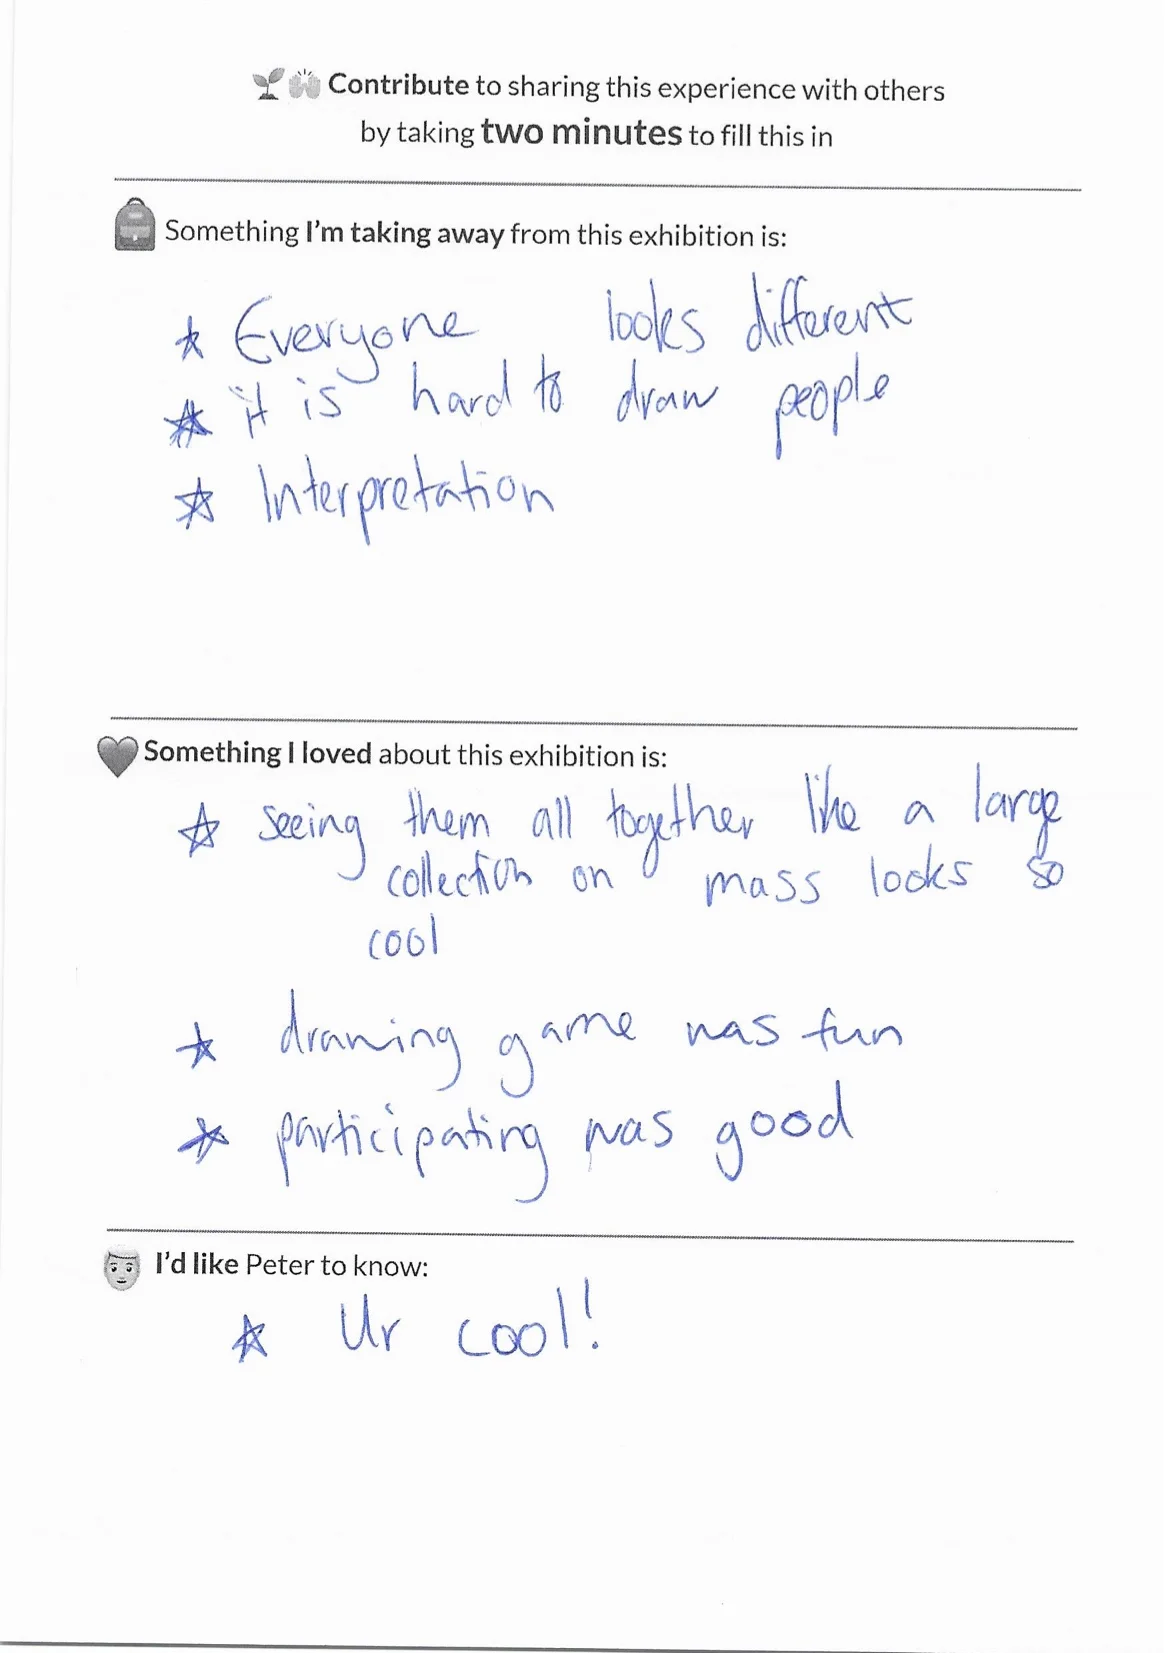 Contribute to sharing this experience with others
by taking two minutes to fill this in
Something I'm taking away from this exhibition is:
Everyone looks different
it is hard to draw people
Interpretation
Something I loved about this exhibition is:
seeing them all together like a large
collection on mass looks so
cool
drawing game was fun
participating was good
I'd like Peter to know:
Ur cool!